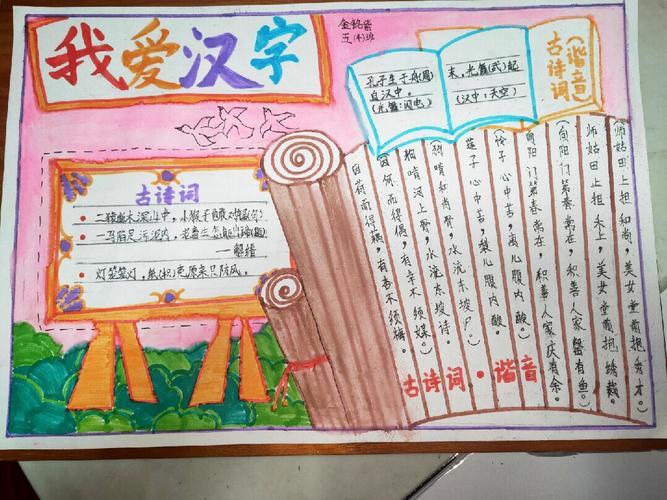 我爱汉字
金铭紫
五(4)班
孔子生于舟(周)
自汉中。
(光舞:闪电)
末,光舞(武)起
(汉中:天空)
古诗词
(谐音)
古诗词
二猿断木深山中,小猴子也敢对锯(句)
一马陷足污泥内,老畜生怎能出蹄(题)
——解缙
灯笼笼灯,纸(枳)壳原来只防风。
(师姑田上担和尚,美女堂前抱秀才。)
师姑田上担禾上,美女堂前抱绣裁。
(向阳门第春常在,积善人家庆有余。
向阳门第春常在,积善人家罄有鱼。)
(怜子心中苦,离儿腹内酸。
莲子心中苦,梨儿腹内酸。
狗啃河上骨,水流东坡诗。
因何而得偶,有幸不须媒。)
因荷而得藕,有杏不须梅。
古诗词·谐音